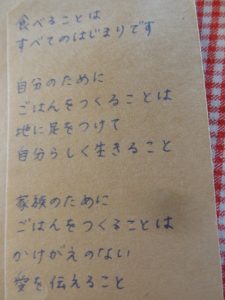 食べることは
すべてのはじまりです
自分のために
ごはんをつくることは
地に足をつけて
自分らしく生きること
家族のために
ごはんをつくることは
かけがえのない
愛を伝えること